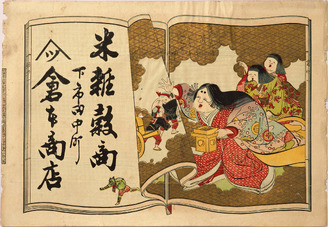 米雑穀商
下市田中町
倉本商店